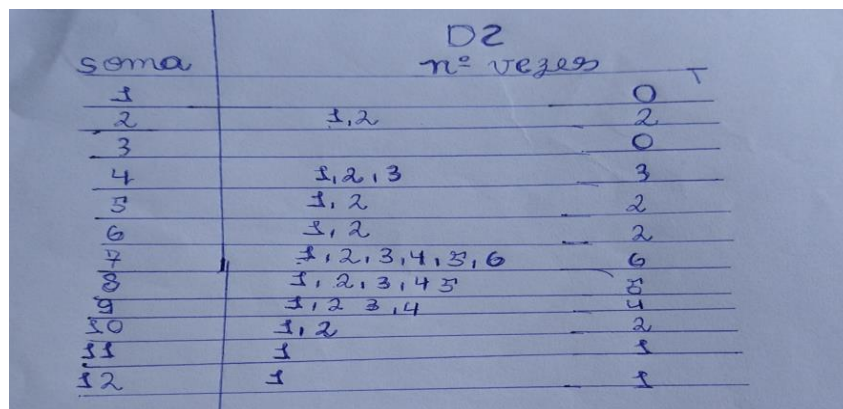 D2
soma nº vezes T
1 0
2 1,2 2
3 0
4 1,2,3 3
5 1,2 2
6 1,2 2
7 1,2,3,4,5,6 6
8 1,2,3,4 5 5
9 1,2 3,4 4
10 1,2 2
11 1 1
12 1 1